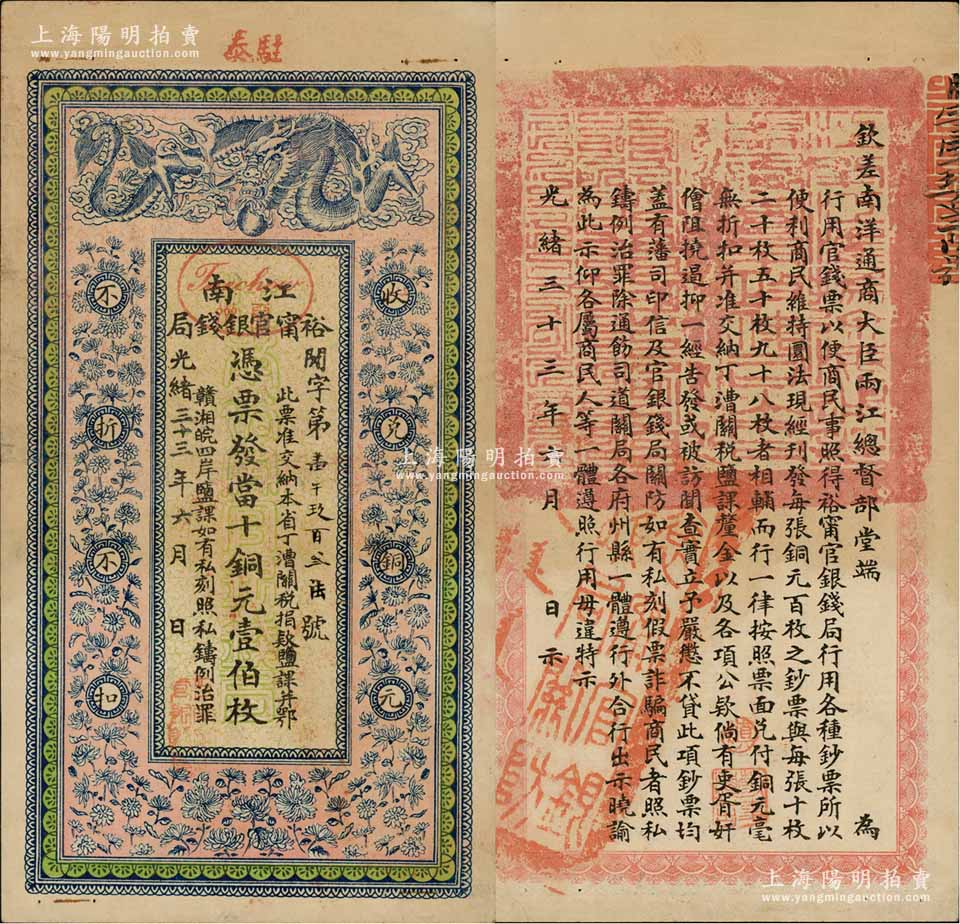 上海陽明拍賣
www.yangmingauction.com
駐泰
江南
裕甯官銀錢局
聞字第壹千玖百叁拾號
此票准交納本省丁漕關稅捐款鹽課并鄂
憑票發當十銅元壹伯枚
贛湘皖四岸鹽課如有私刻照私鑄例治罪
光緒三十三年六月 日
收兌銅元
不折不扣
上海陽明拍賣
www.yangmingauction.com
上海陽明拍賣
www.yangmingauction.com
欽差南洋通商大臣兩江總督部堂端 為
行用官錢票以便商民事照得裕甯官銀錢局行用各種鈔票所以
便利商民維持圜法現經刊發每張銅元百枚之鈔票與每張十枚
二十枚五十枚九十八枚者相輔而行一律按照票面兌付銅元毫
無折扣并准交納丁漕關稅鹽課釐金以及各項公款倘有吏胥奸
儈阻撓遏抑一經告發或被訪聞查實立予嚴懲不貸此項鈔票均
蓋有藩司印信及官銀錢局關防如有私刻假票詐騙商民者照私
鑄例治罪除通飭司道關局各府州縣一體遵行外合行出示曉諭
為此示仰各屬商民人等一體遵照行用毋違特示
光緒三十三年六月 日示
上海陽明拍賣
www.yangmingauction.com
上海陽明拍賣
www.yangmingauction.com